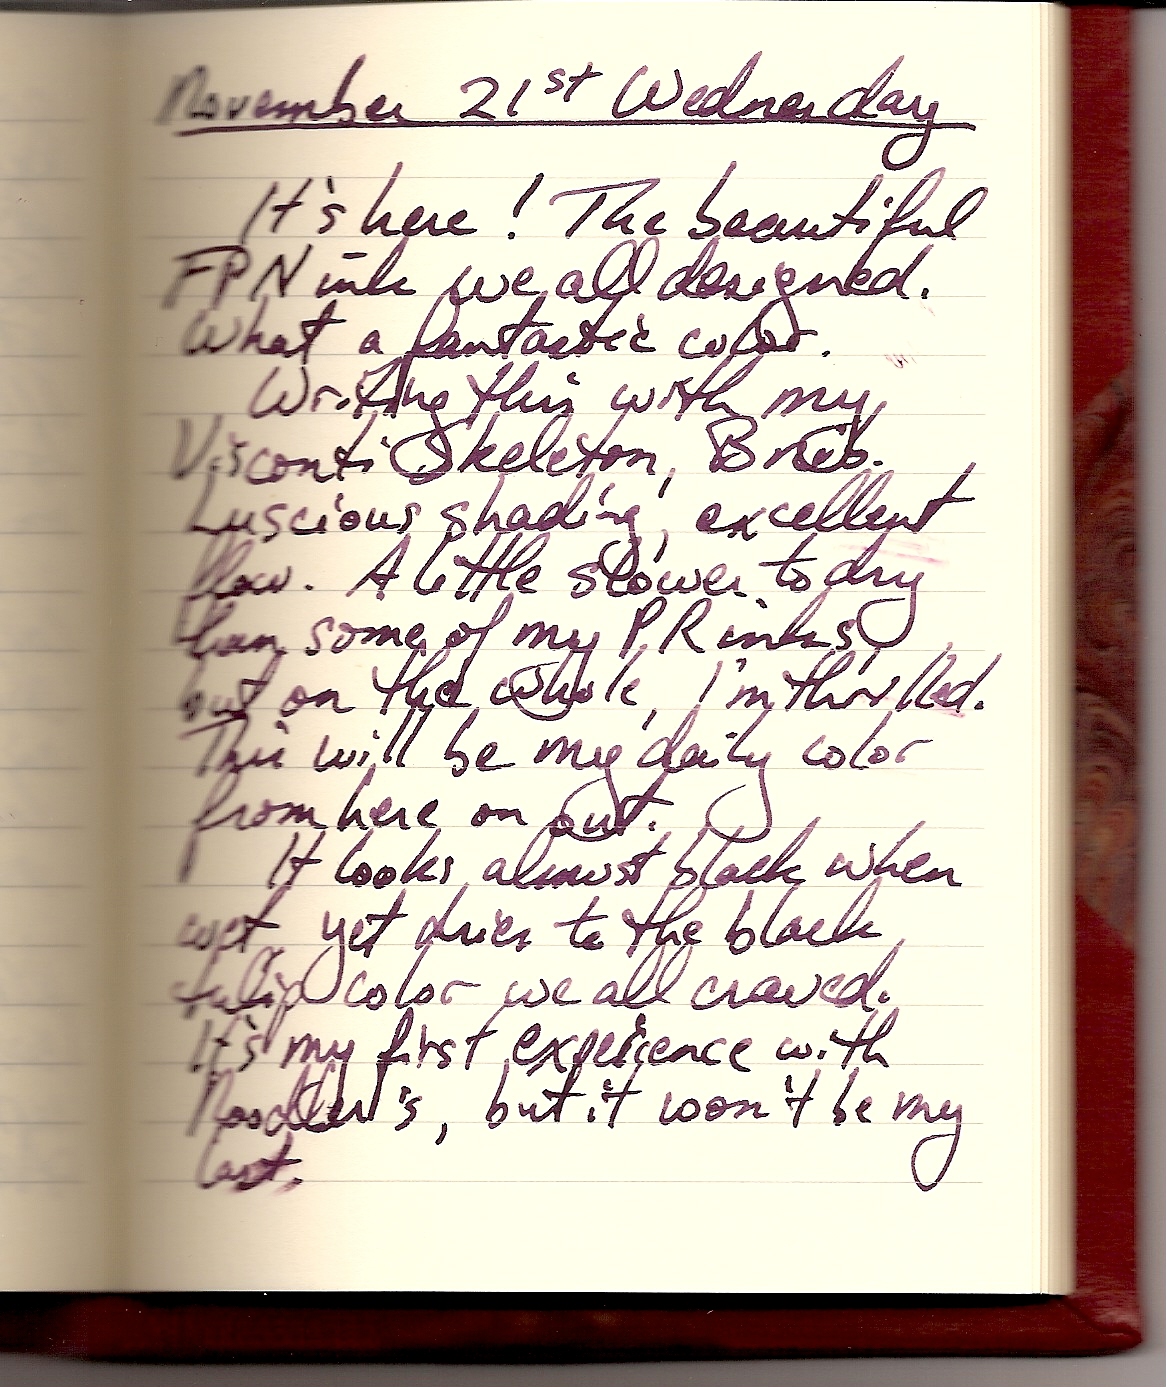 November 21st Wednesday
It's here! The beautiful
FPN ink we all designed.
What a fantastic color.
Writing this with my
Visconti Skeleton, B nib.
Luscious shading, excellent
flow. A little slower to dry
than some of my PR inks,
but on the whole, I'm thrilled.
This will be my daily color
from here on out.
It looks almost black when
wet, yet dries to the black
tulip color we all craved.
It's my first experience with
Noodler's, but it won't be my
last.